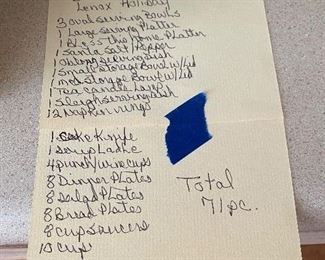 Lenox Holiday
3 oval serving Bowls
1 Large serving Platter
1 Bless The home Platter
1 Santa salt/Pepper
1 oblong serving dish
1 Small storage Bowl w/Lid
1 med. Storage Bowl w/Lid
1 Tea candle Lamp
1 sleigh serving dish
12 Napkin rings
1 Cake Knife
1 Soup Ladle
4 punch/wine cups
8 Dinner Plates
8 salad Plates
8 Bread Plates
8 cup saucers
10 cup
Total
71 pc.